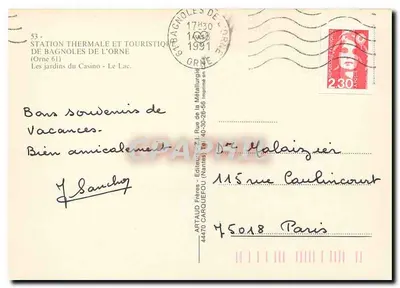 53 -
STATION THERMALE ET TOURISTIQUE
DE BAGNOLES DE L'ORNE
(Orne 61)
Les jardins du Casino - Le Lac.
61 BAGNOLES DE L'ORNE
17H30
1991
ORNE
2,30
Bons souvenirs de
Vacances.
Bien amicalement
J Sanchoz
ARTAUD Frères - Editeurs - Z.I. Rue de la Métallurgie
44470 CARQUEFOU (Nantes) Tél. 40-30-26-56
Dr Malaizier
115 rue Caulincourt
75018 Paris